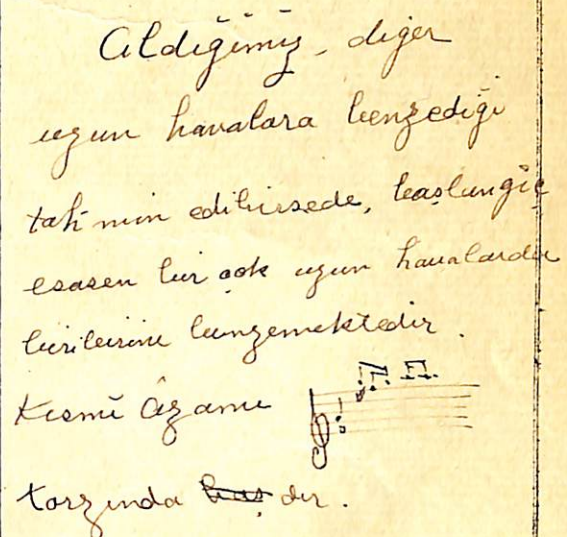 Aldığımız, diğer
uzun havalara benzediği
tahmin edilirsede, başlangıç
esasen bir çok uzun havalarda
birilerine benzemektedir.
Kısmî âzamı
tarzında baş dır.